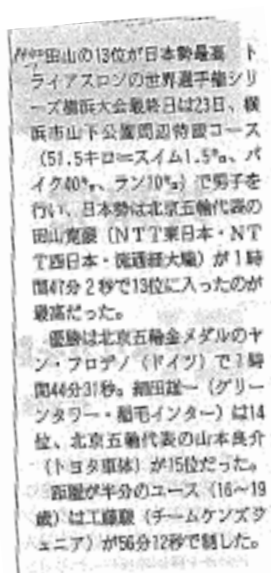 田山の13位が日本勢最高 ト
ライアスロンの世界選手権シリ
ーズ横浜大会最終日は23日、横
浜市山下公園周辺特設コース
(51.5キロ=スイム1.5㌔、バ
イク40㌔、ラン10㌔)で男子を
行い、日本勢は北京五輪代表の
田山寛豪(NTT東日本・NT
T西日本・流通経大職)が1時
間47分2秒で13位に入ったのが
最高だった。
優勝は北京五輪金メダルのヤ
ン・フロデノ(ドイツ)で1時
間44分31秒。細田雄一(グリー
ンタワー・稲毛インター)は14
位、北京五輪代表の山本良介
(トヨタ車体)が15位だった。
距離が半分のユース(16〜19
歳)は工藤駿(チームケンズジ
ュニア)が56分12秒で制した。